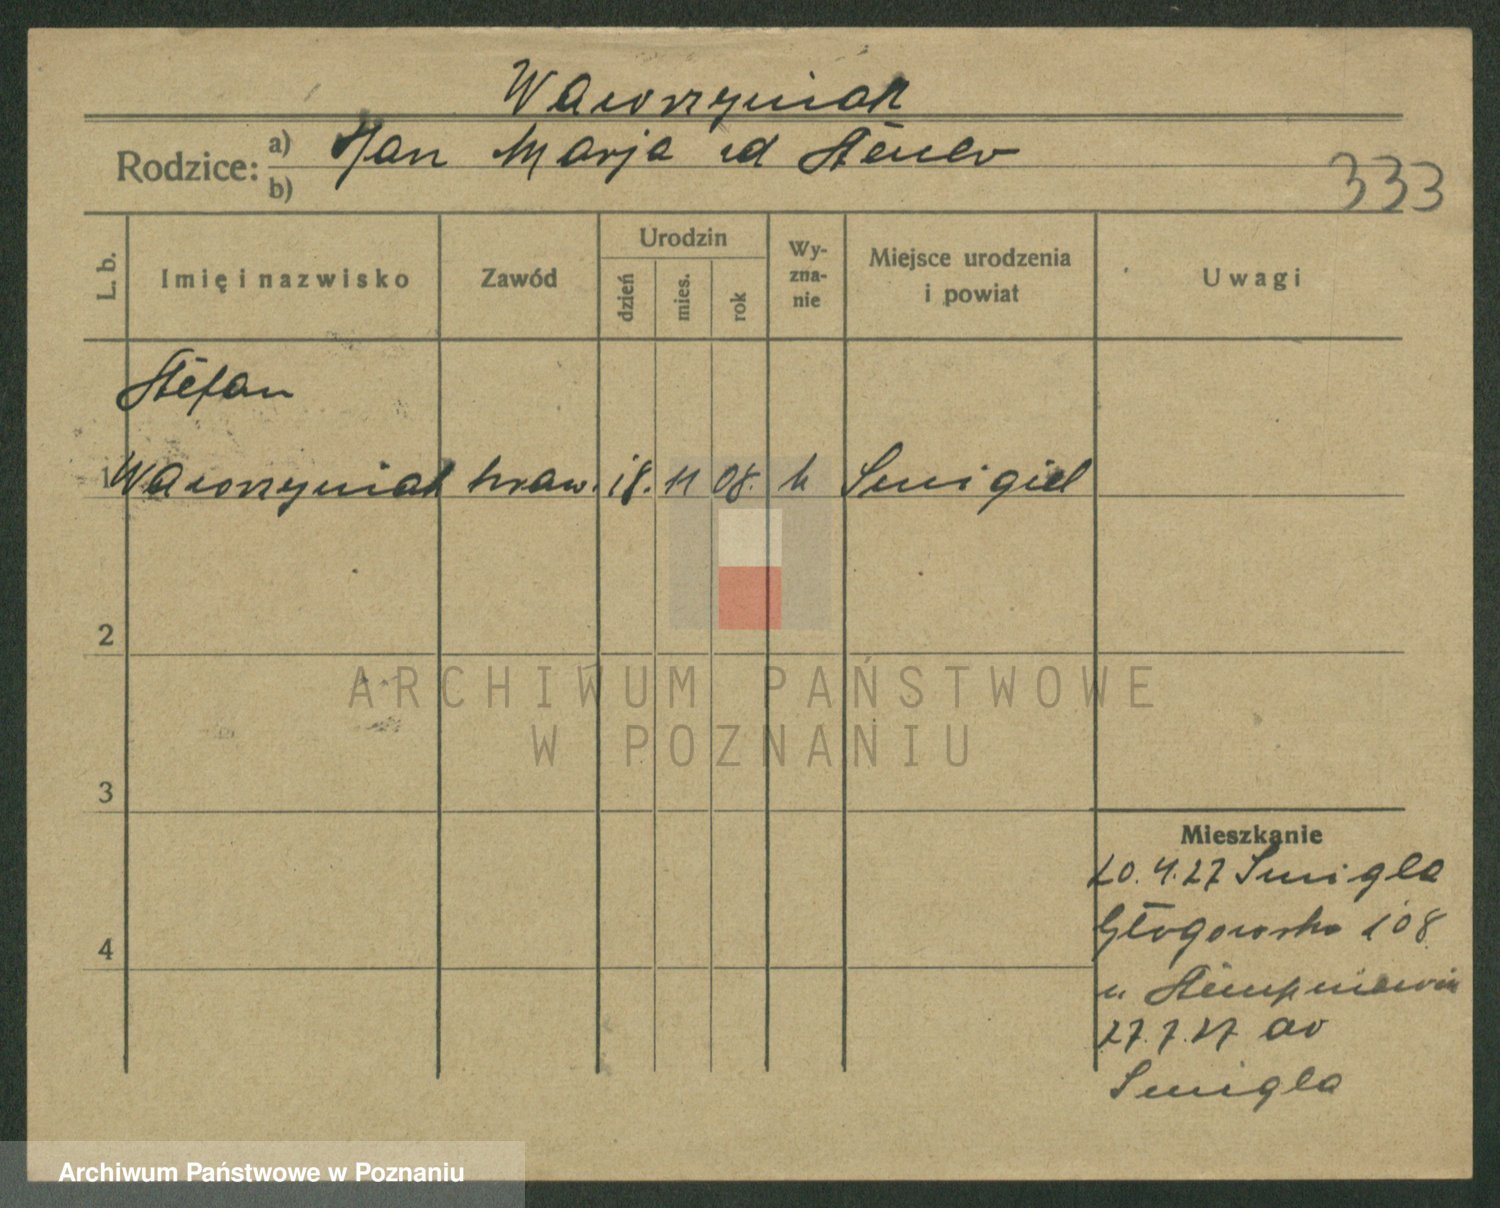 Wawrzyniak
Rodzice: a) Jan Marja
b)
333
L. b.
Imię i nazwisko
Zawód
Urodzin
dzień
mies.
rok
Wy-
zna-
nie
Miejsce urodzenia
i powiat
Uwagi
Stefan
1 Wawrzyniak kraw. 18. 11 08. k Smigiel
2
ARCHIWUM PAŃSTWOWE
W POZNANIU
3
Mieszkanie
20.4.27 Smigla
4
Głogowska 108
u
27.7.27 do
Smigla
Archiwum Państwowe w Poznaniu